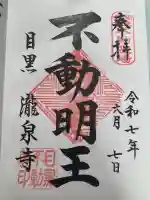 奉拝
令和七年
六月七日
不動明王
目黒
瀧泉寺